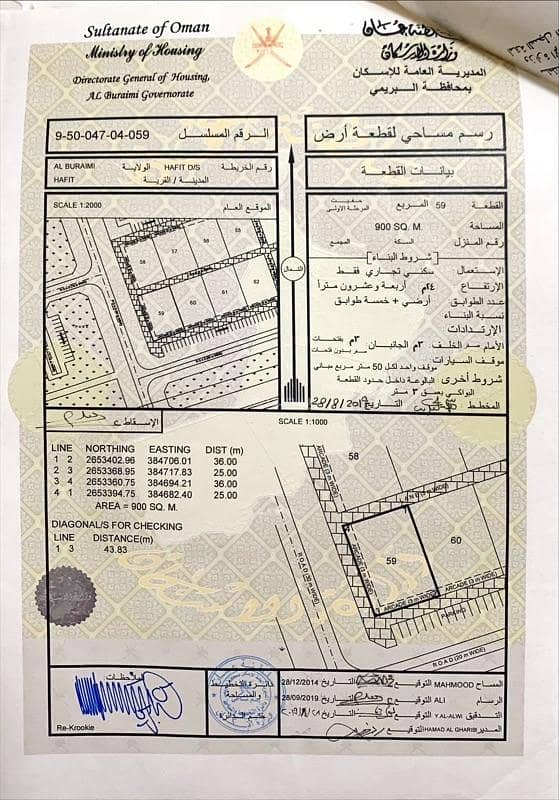 Sultanate of Oman
Ministry of Housing
Directorate General of Housing,
AL Buraimi Governorate
سلطنة عمان
وزارة الإسكان
المديرية العامة للإسكان
بمحافظة البريمي
9-50-047-04-059 الرقم المسلسل
رسم مساحي لقطعة أرض
AL BURAIMI الولاية HAFIT D/S رقم الخريطة
HAFIT المدينة / القرية
بيانات القطعة
SCALE 1:2000 الموقع العام
57
58
59
60
61
62
الشمال
القطعة 59 المربع حفيت المرحلة الاولى
المساحة 900 SQ. M.
رقم المنزل السكة المجمع
شروط البناء
الإستعمال سكني تجاري فقط
الإرتفاع ٢٤م أربعة وعشرون متراً
عدد الطوابق أرضي + خمسة طوابق
نسبة البناء
الإرتدادات
الأمام ٣م الخلف ٣م الجانبان ٣م بفتحات
بدون فتحات
موقف السيارات موقف واحد لكل 50 متر مربع مباني
شروط أخرى البالوعة داخل حدود القطعة
البواكي بعمق ٣ متر
المخطط التاريخ 28/8/2019
الإسقاط
SCALE 1:1000
LINE NORTHING EASTING DIST (m)
1 2 2653402.96 384706.01 36.00
2 3 2653368.95 384717.83 25.00
3 4 2653360.75 384694.21 36.00
4 1 2653394.75 384682.40 25.00
AREA = 900 SQ. M.
DIAGONAL/S FOR CHECKING
LINE DISTANCE(m)
1 3 43.83
58
59
60
ARCADE (3 m WIDE)
ARCADE (3 m WIDE)
ARCADE (3 m WIDE)
PARKING
ROAD (20 m WIDE)
ROAD (20 m WIDE)
ملاحظات
Re-Krookie
دائرة التخطيط
والمساحة
المساح MAHMOOD التوقيع التاريخ 28/12/2014
الرسام ALI التوقيع التاريخ 28/09/2019
التدقيق Y.AL-ALWI التوقيع التاريخ
المدير HAMAD AL GHARIBI التوقيع